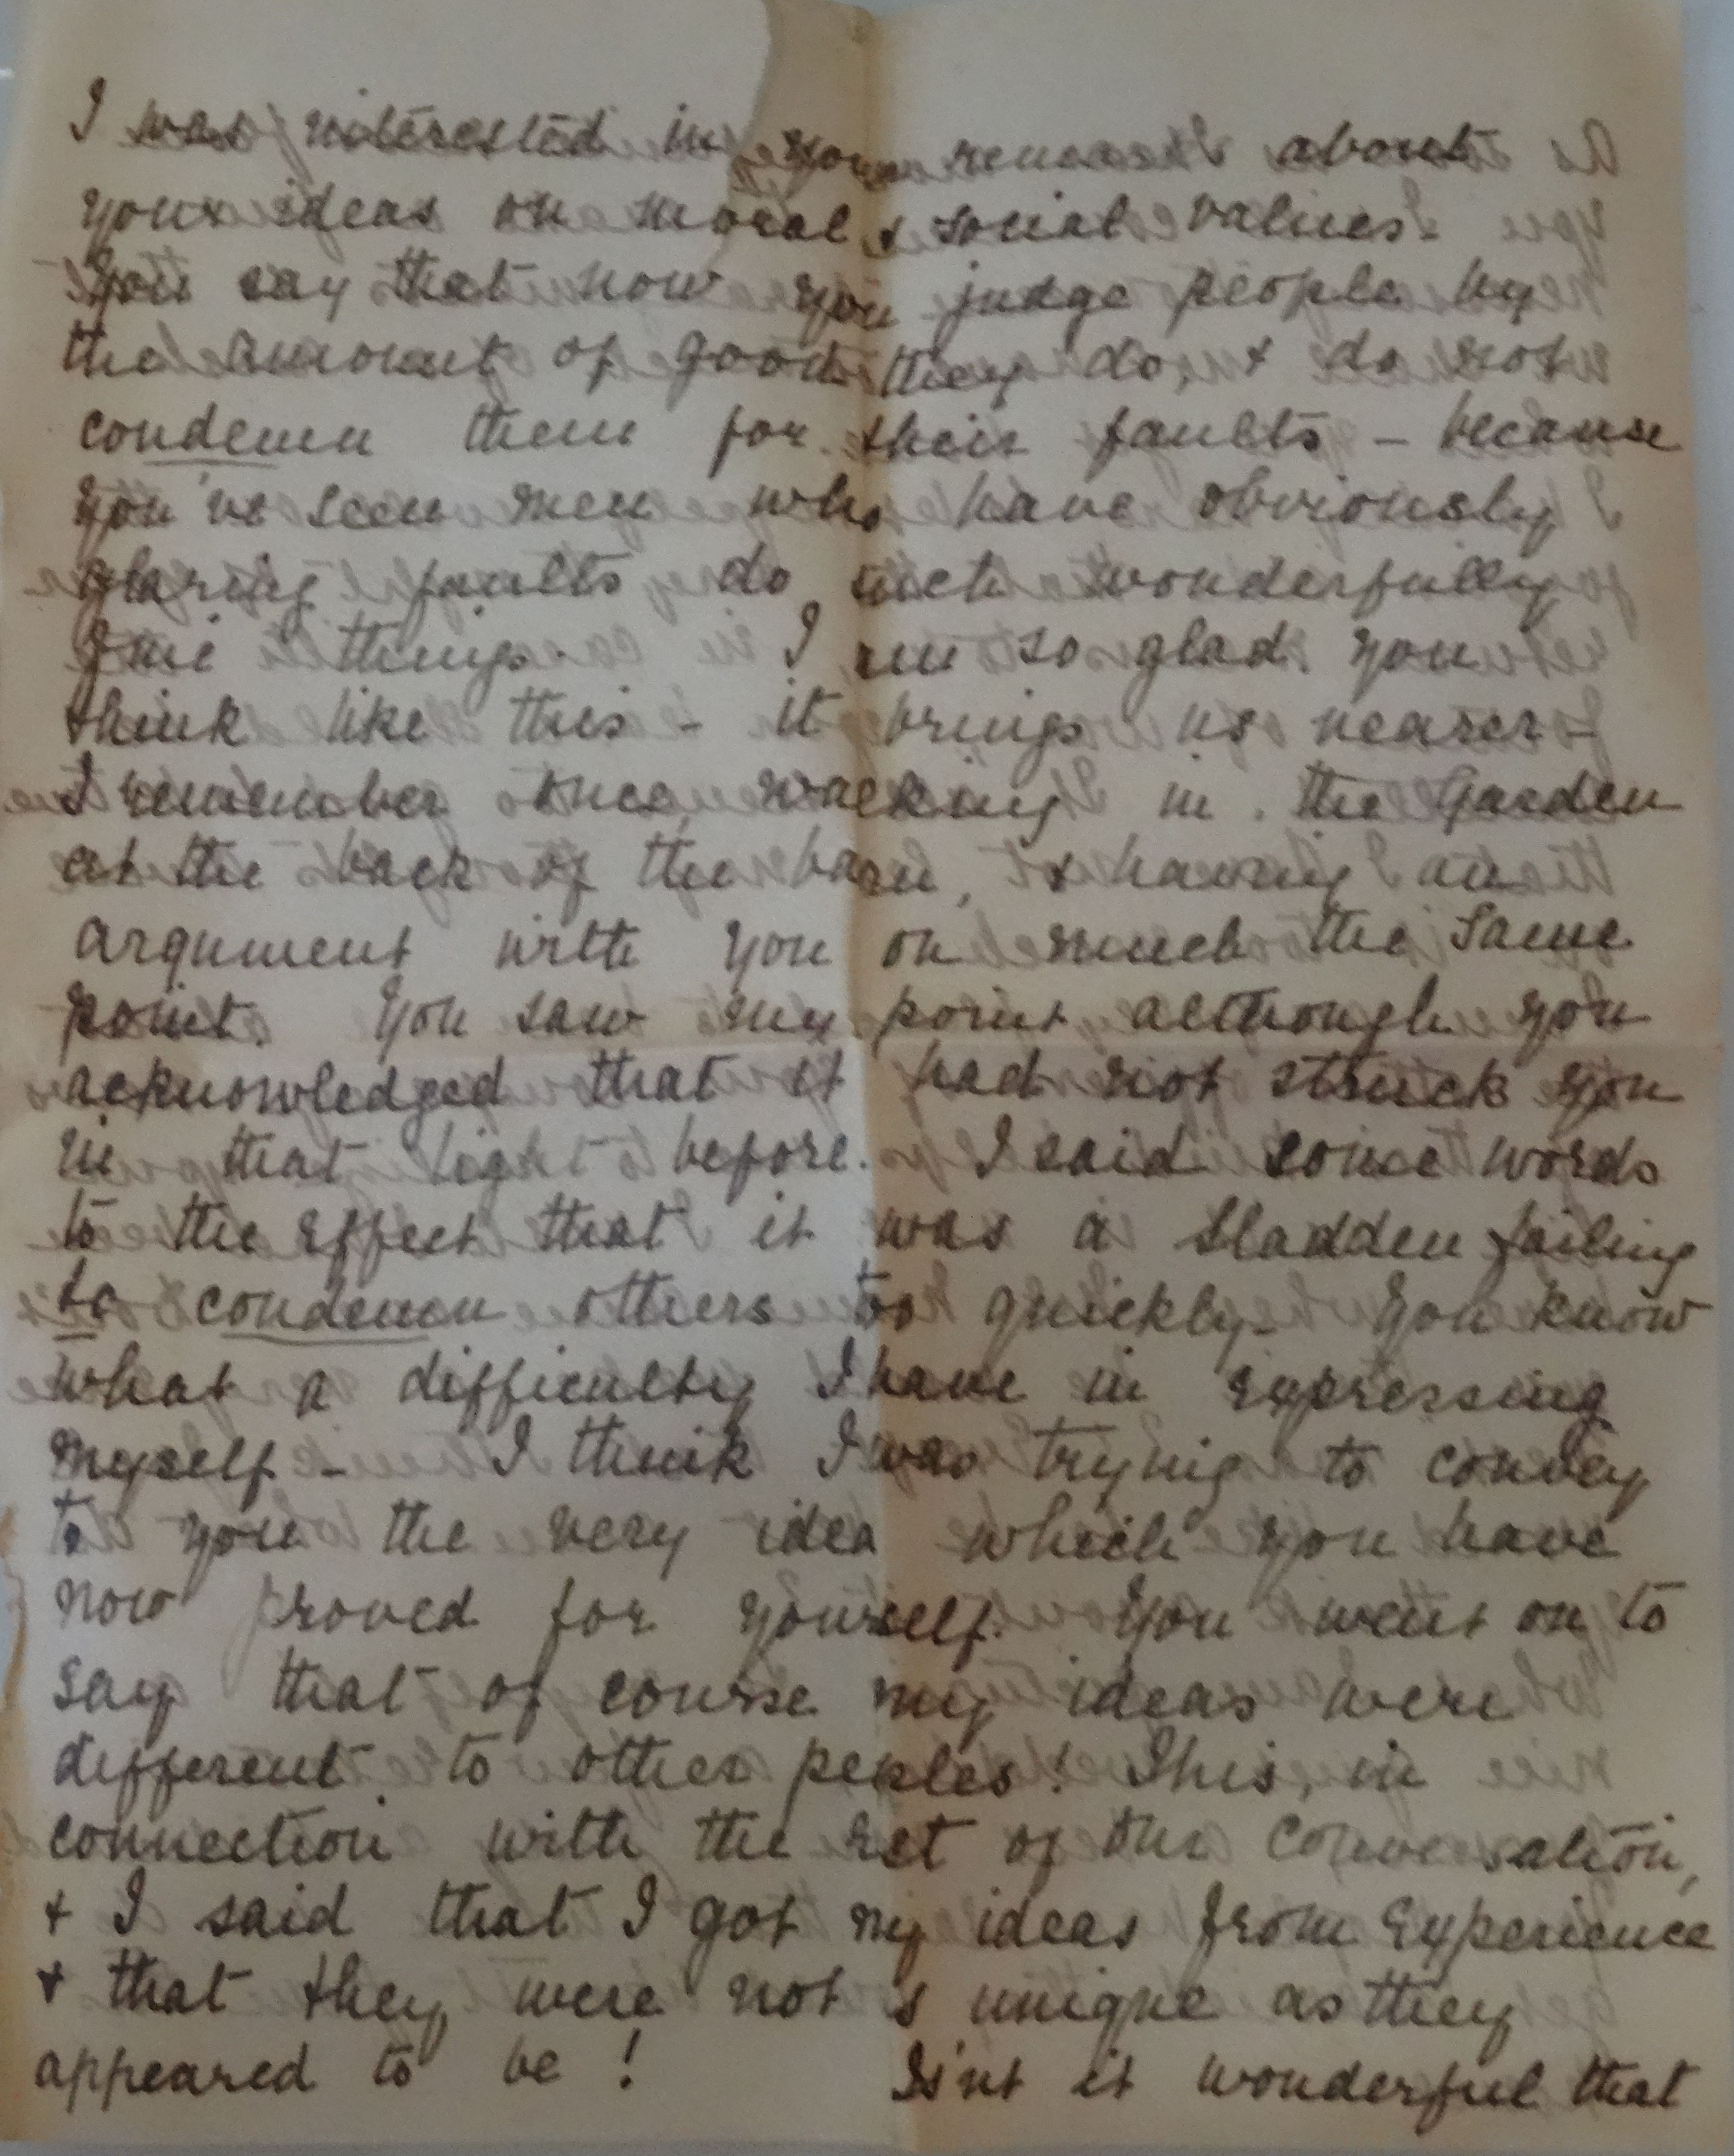 I was interested in your remarks about
your ideas on moral & social values.
You say that now you judge people by
the amount of good they do, & do not
condemn them for their faults - because
you've seen men who have obviously
glaring faults do such wonderfully
fine things. I am so glad you
think like this - it brings us nearer -
I remember once walking in the Garden
at the back of the barn, & having an
argument with you on much the same
point. You saw my point although you
acknowledged that it had not struck you
in that light before. I said some words
to the effect that it was a Sladden failing
to condemn others too quickly. You know
what a difficulty I have in expressing
myself - I think I was trying to convey
to you the very idea which you have
now proved for yourself. You went on to
say that of course my ideas were
different to other peoples! This, in
connection with the rest of our conversation,
& I said that I got my ideas from experience
& that they were not so unique as they
appeared to be! Isnt it wonderful that